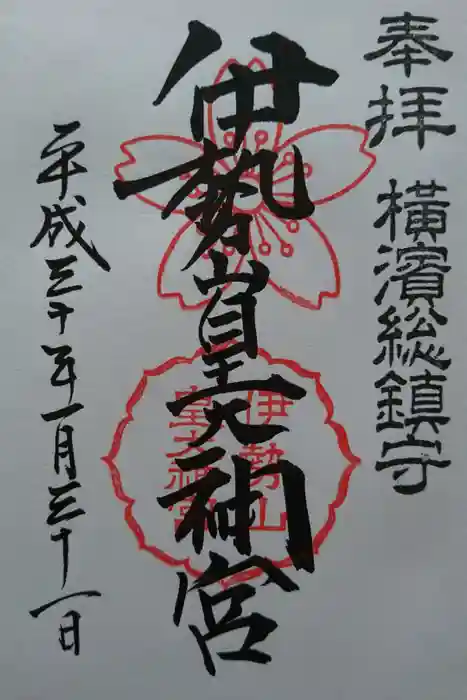 奉拝
横濱総鎮守
伊勢山皇大神宮
伊勢山
皇大神宮
平成三十年一月三十一日